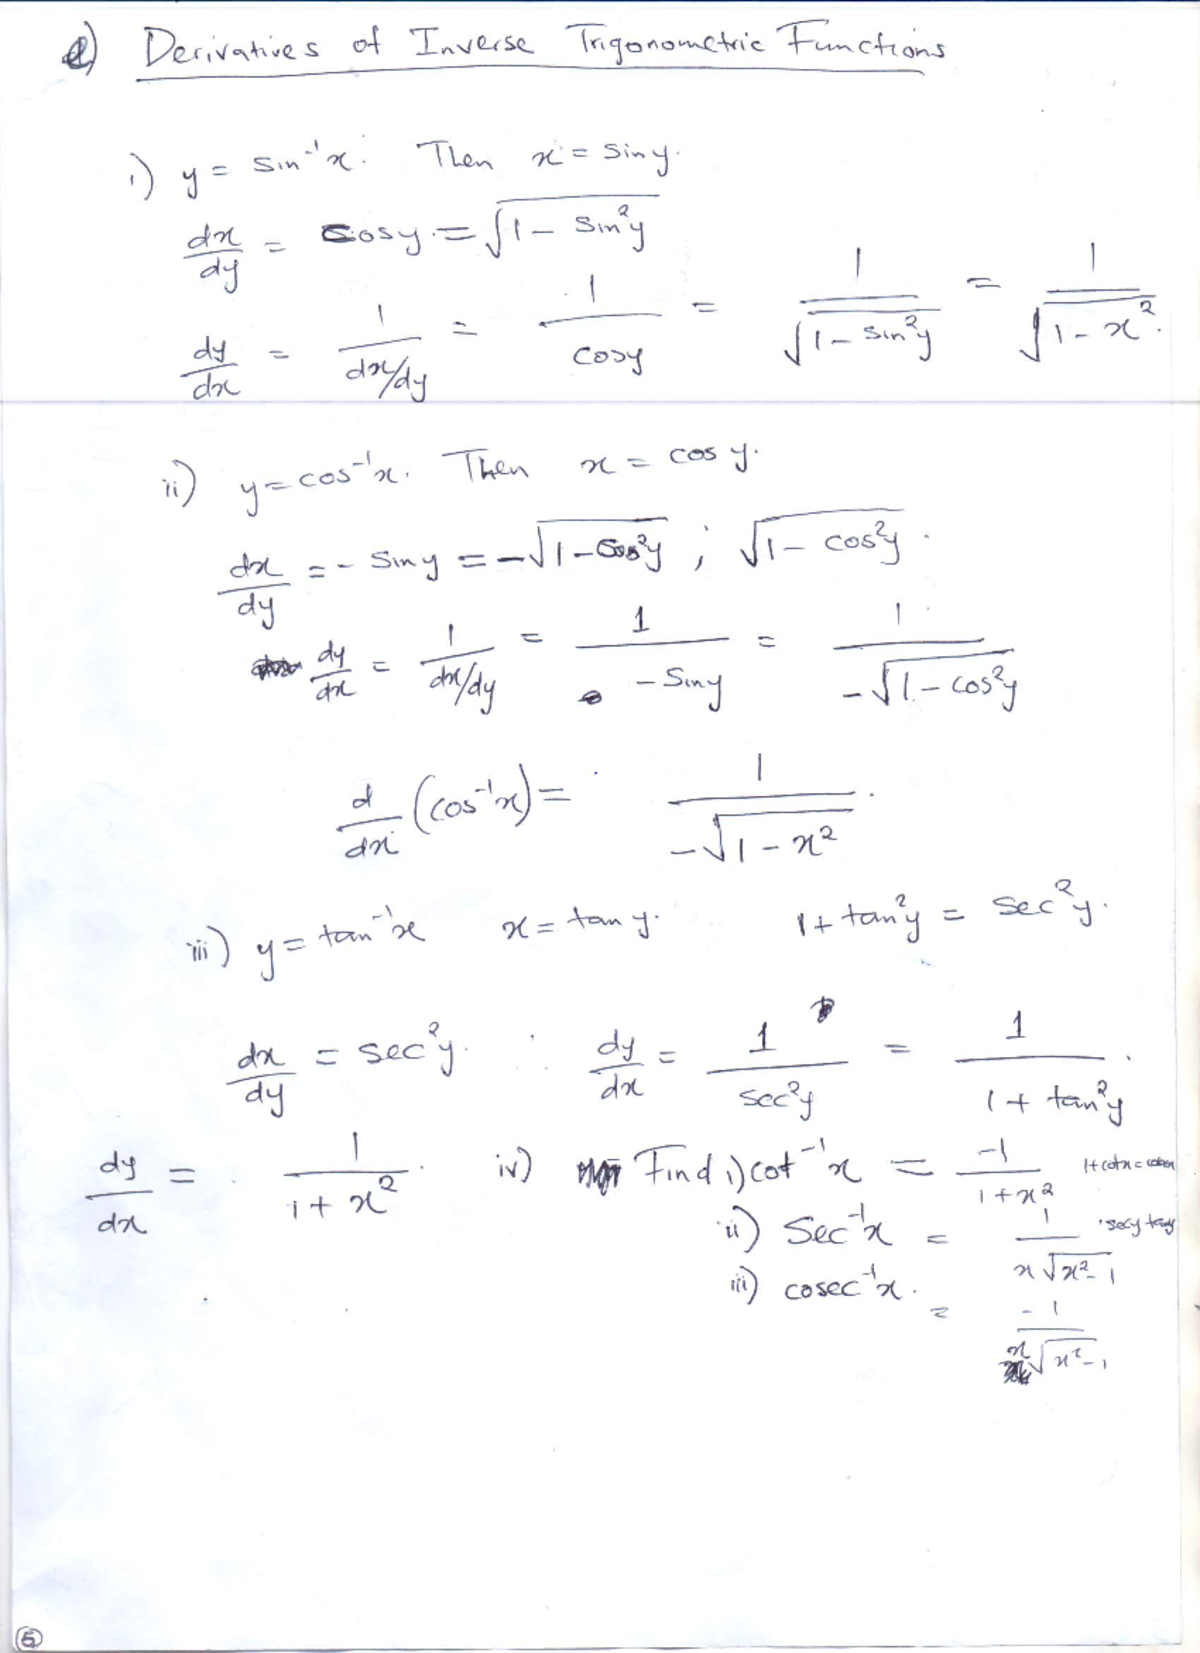 e) Derivatives of Inverse Trigonometric Functions
i) y = sin⁻¹x. Then x = sin y.
dx/dy = cosy = √(1 - sin²y)
dy/dx = 1/(dx/dy) = 1/cosy = 1/√(1 - sin²y) = 1/√(1 - x²).
ii) y = cos⁻¹x. Then x = cos y.
dx/dy = - siny = -√(1 - cos²y) ; √(1 - cos²y).
dy/dx = 1/(dx/dy) = 1/(- siny) = 1/(-√(1 - cos²y))
d/dx (cos⁻¹x) = 1/(-√(1 - x²)).
iii) y = tan⁻¹x x = tan y. 1 + tan²y = sec²y.
dx/dy = sec²y. ∴ dy/dx = 1/sec²y = 1/(1 + tan²y).
dy/dx = 1/(1 + x²). iv) Find i) cot⁻¹x = -1/(1 + x²)
ii) Sec⁻¹x = 1/(x√(x² - 1)) secy tany
iii) cosec⁻¹x. = -1/(x√(x² - 1))
5